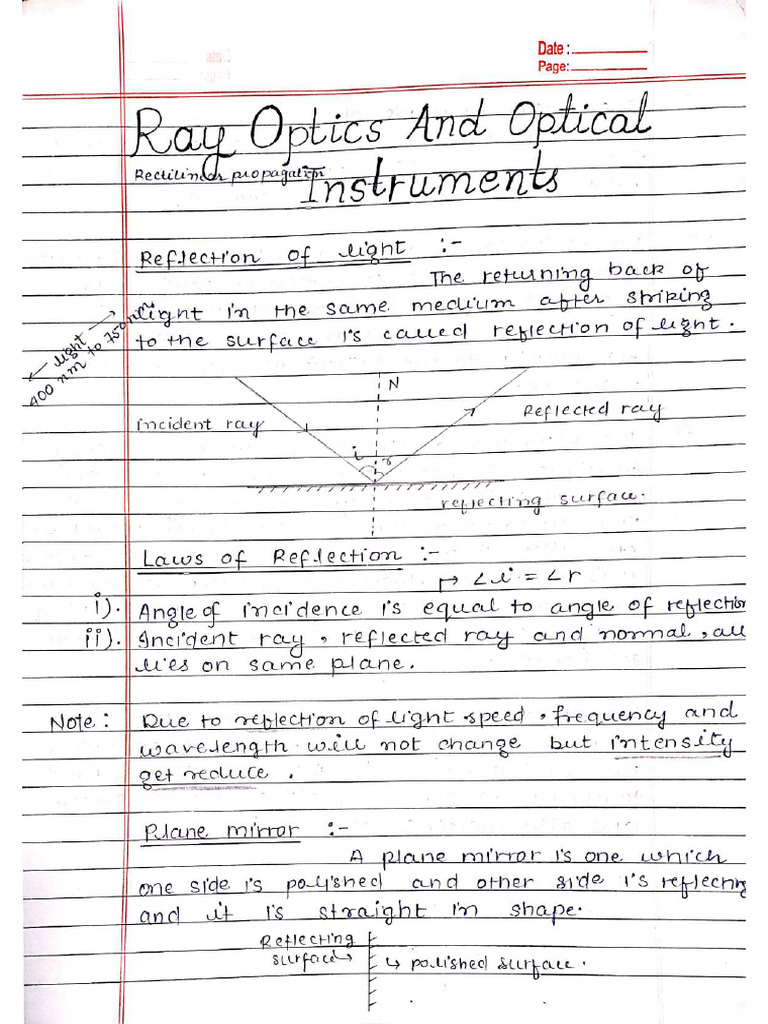 Date :
Page:
Ray Optics And Optical
Rectilinear propagation
Instruments
Reflection of light :-
The returning back of
light in the same medium after striking
to the surface is called reflection of light.
← light →
400 nm to 750 nm
N
incident ray
Reflected ray
i
r
reflecting surface.
Laws of Reflection :-
↦ ∠i = ∠r
i). Angle of incidence is equal to angle of reflection
ii). Incident ray, reflected ray and normal, all
lies on same plane.
Note: Due to reflection of light speed, frequency and
wavelength will not change but intensity
get reduce.
Plane mirror :-
A plane mirror is one which
one side is polished and other side is reflecting
and it is straight in shape.
Reflecting
surface
↳ polished surface.